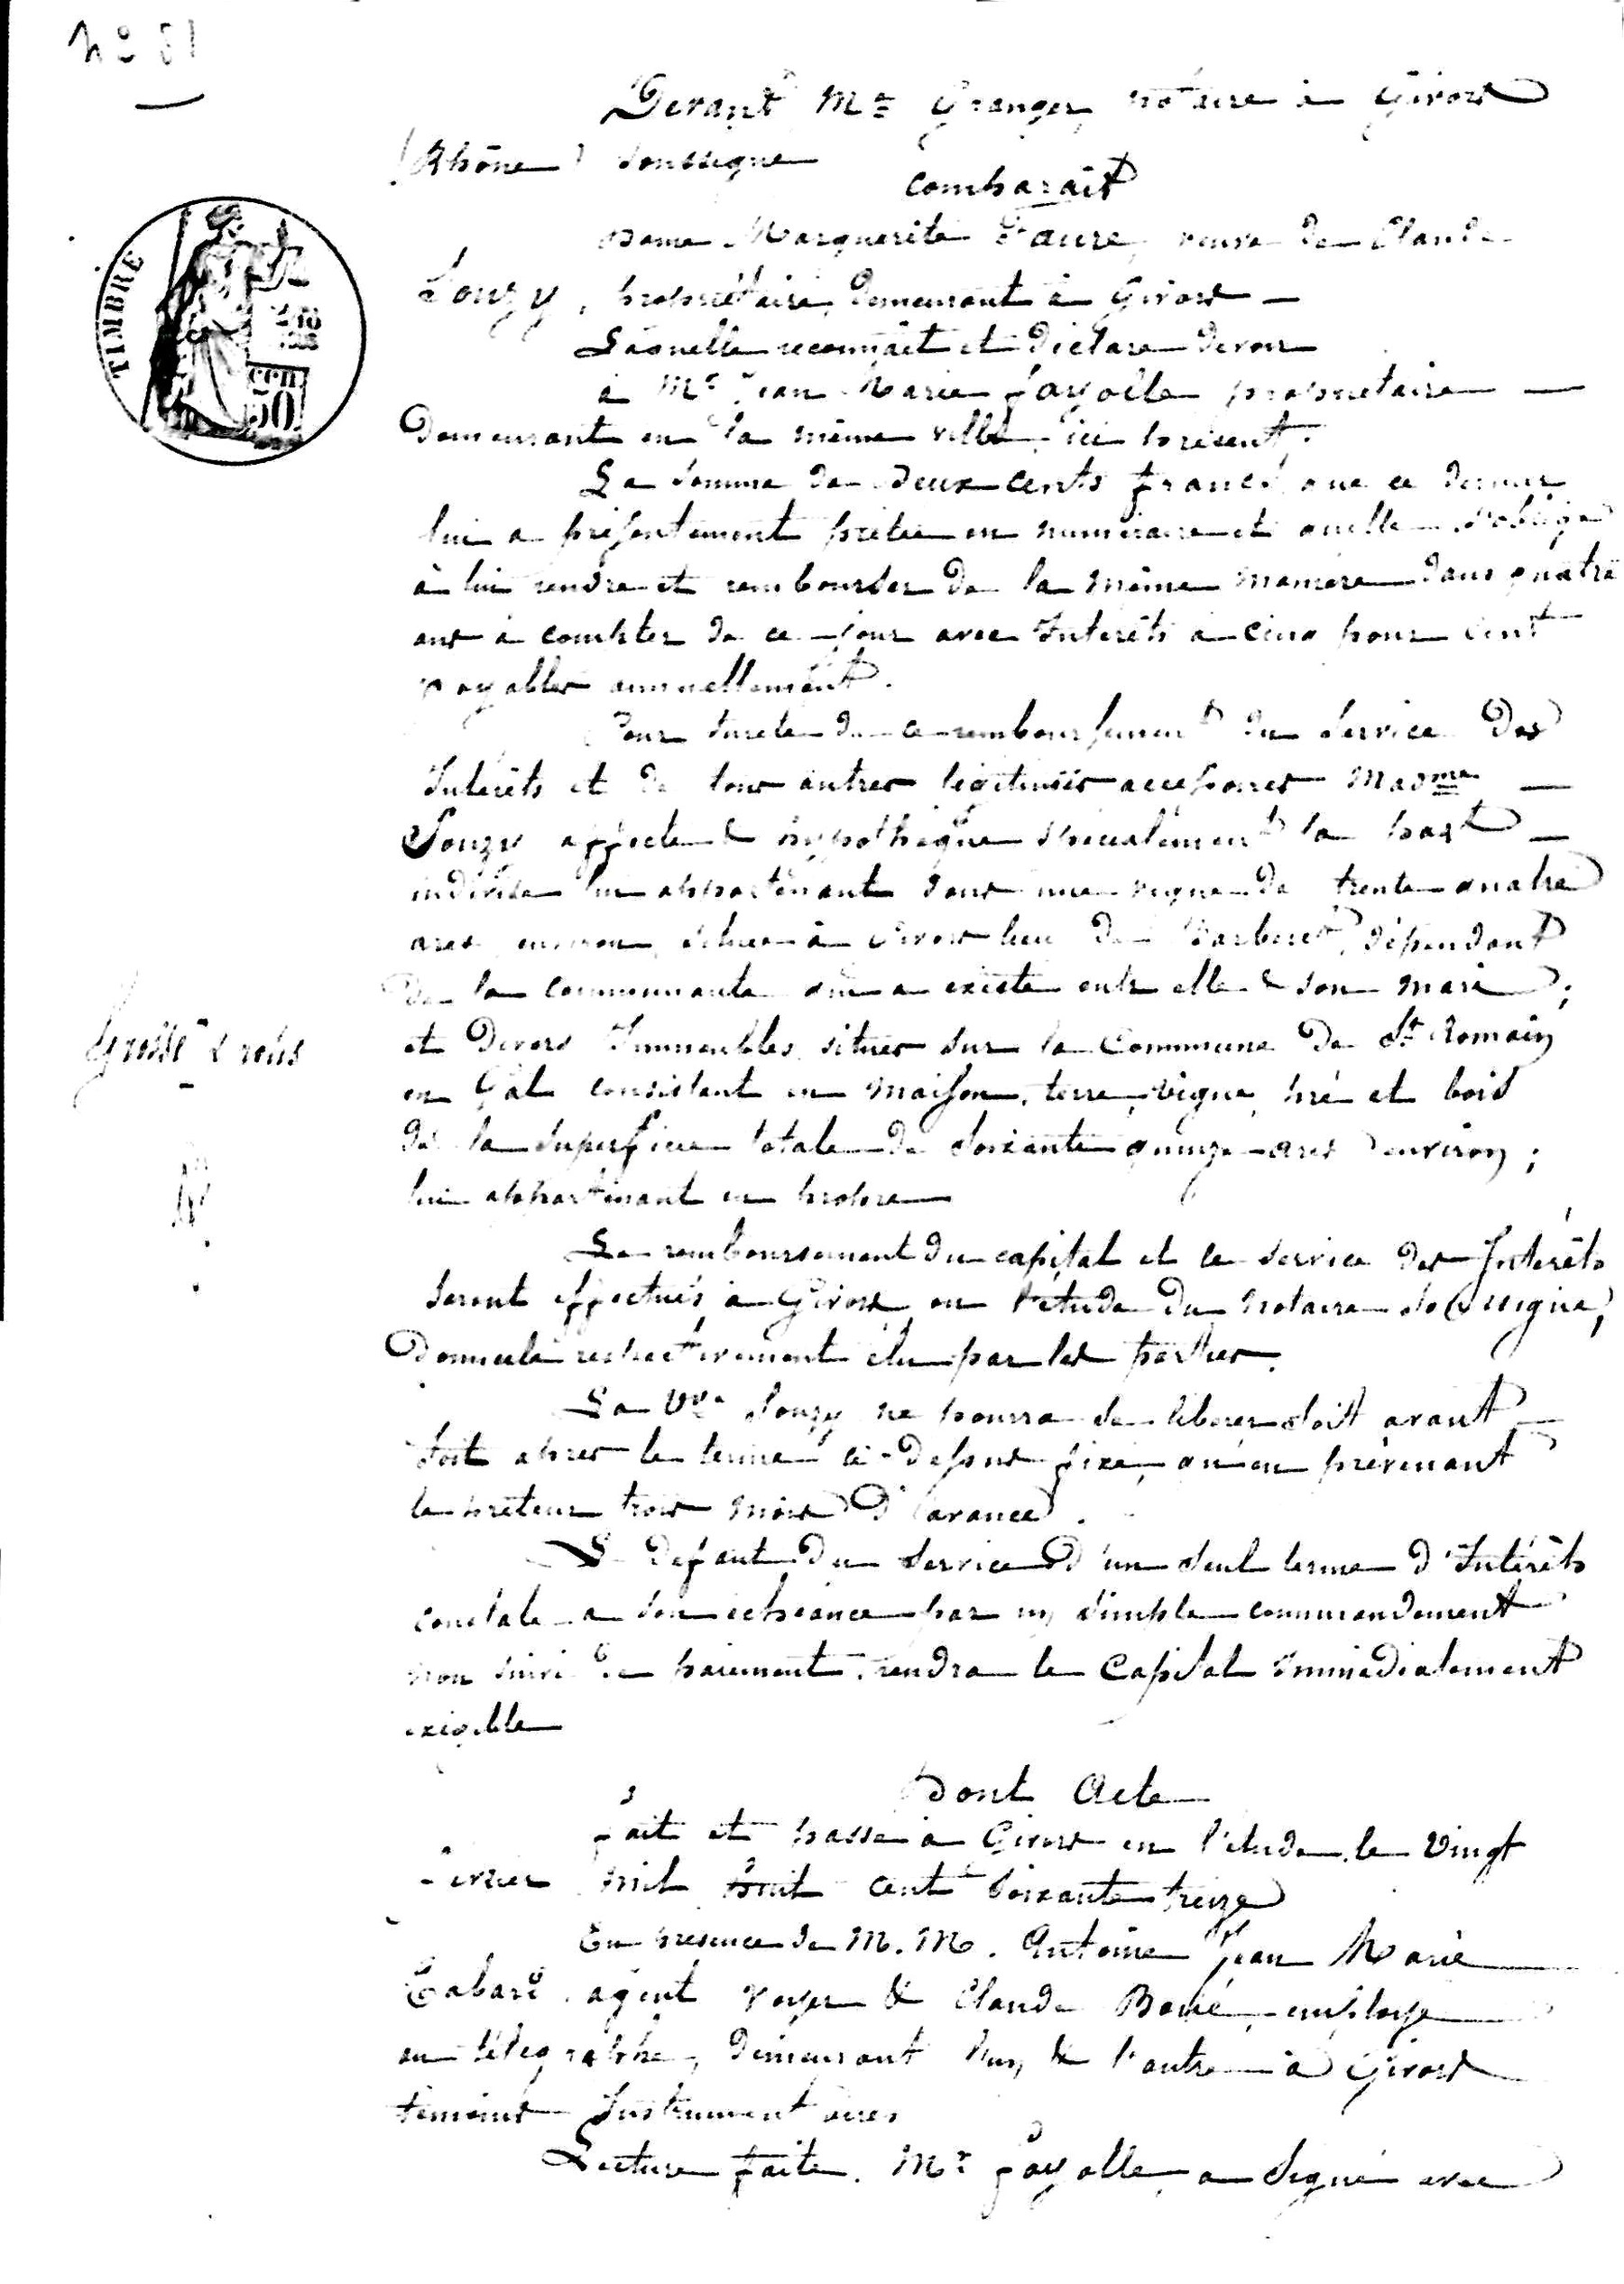 N° 51
Devant Me Granger, notaire à Givors
(Rhône) soussigné
Comparait
Dame Marguerite Faure, veuve de Claude
Souzy, propriétaire, demeurant à Givors —
Laquelle reconnait et déclare devoir
TIMBRE
CEN
50
à Mr Jean Marie Fayolle propriétaire —
demeurant en la même ville, ici présent,
La somme de deux cents francs que ce dernier
lui a présentement prêtée en numéraire et qu'elle s'oblige
à lui rendre et rembourser de la même manière dans quatre
ans à compter de ce jour avec Intérêts à cinq pour cent
payables annuellement.
Pour sureté de ce remboursement du Service des
Intérêts et de tous autres légitimes accessoires Madme —
Souzy affecte & hypothèque spécialement la part —
indivise lui appartenant dans une vigne de trente quatre
ares environ, située à Givors lieu de dépendant
de la communauté qui a existé entr elle & son mari ;
Grosse &
et divers Immeubles situés sur la Commune de St Romain
en Gal consistant en maison, terre, vigne, pré et bois
de la superficie totale de soixante quinze ares environ ;
lui appartenant en propre
Le remboursement du capital et le service des Intérêts
seront effectués à Givors en l'étude du notaire soussigné,
domicile respectivement élu par les parties.
La Vve Souzy ne pourra se libérer soit avant —
soit après le terme ci-dessus fixé, qu'en prévenant
le prêteur trois mois d'avance.
Le défaut du service d'un seul terme d'Intérêts
constaté à son échéance par un simple commandement
non suivi de paiement, rendra le Capital immédiatement
exigible
Dont Acte
Fait et passé à Givors en l'étude, le vingt
février mil huit cent soixante treize
En présence de M.M. Antoine Jean Marie
agent voyer & Claude employé
au télégraphe, demeurant l'un & l'autre à Givors
témoins Instrumentaires
Lecture faite, Mr Fayolle a signé avec